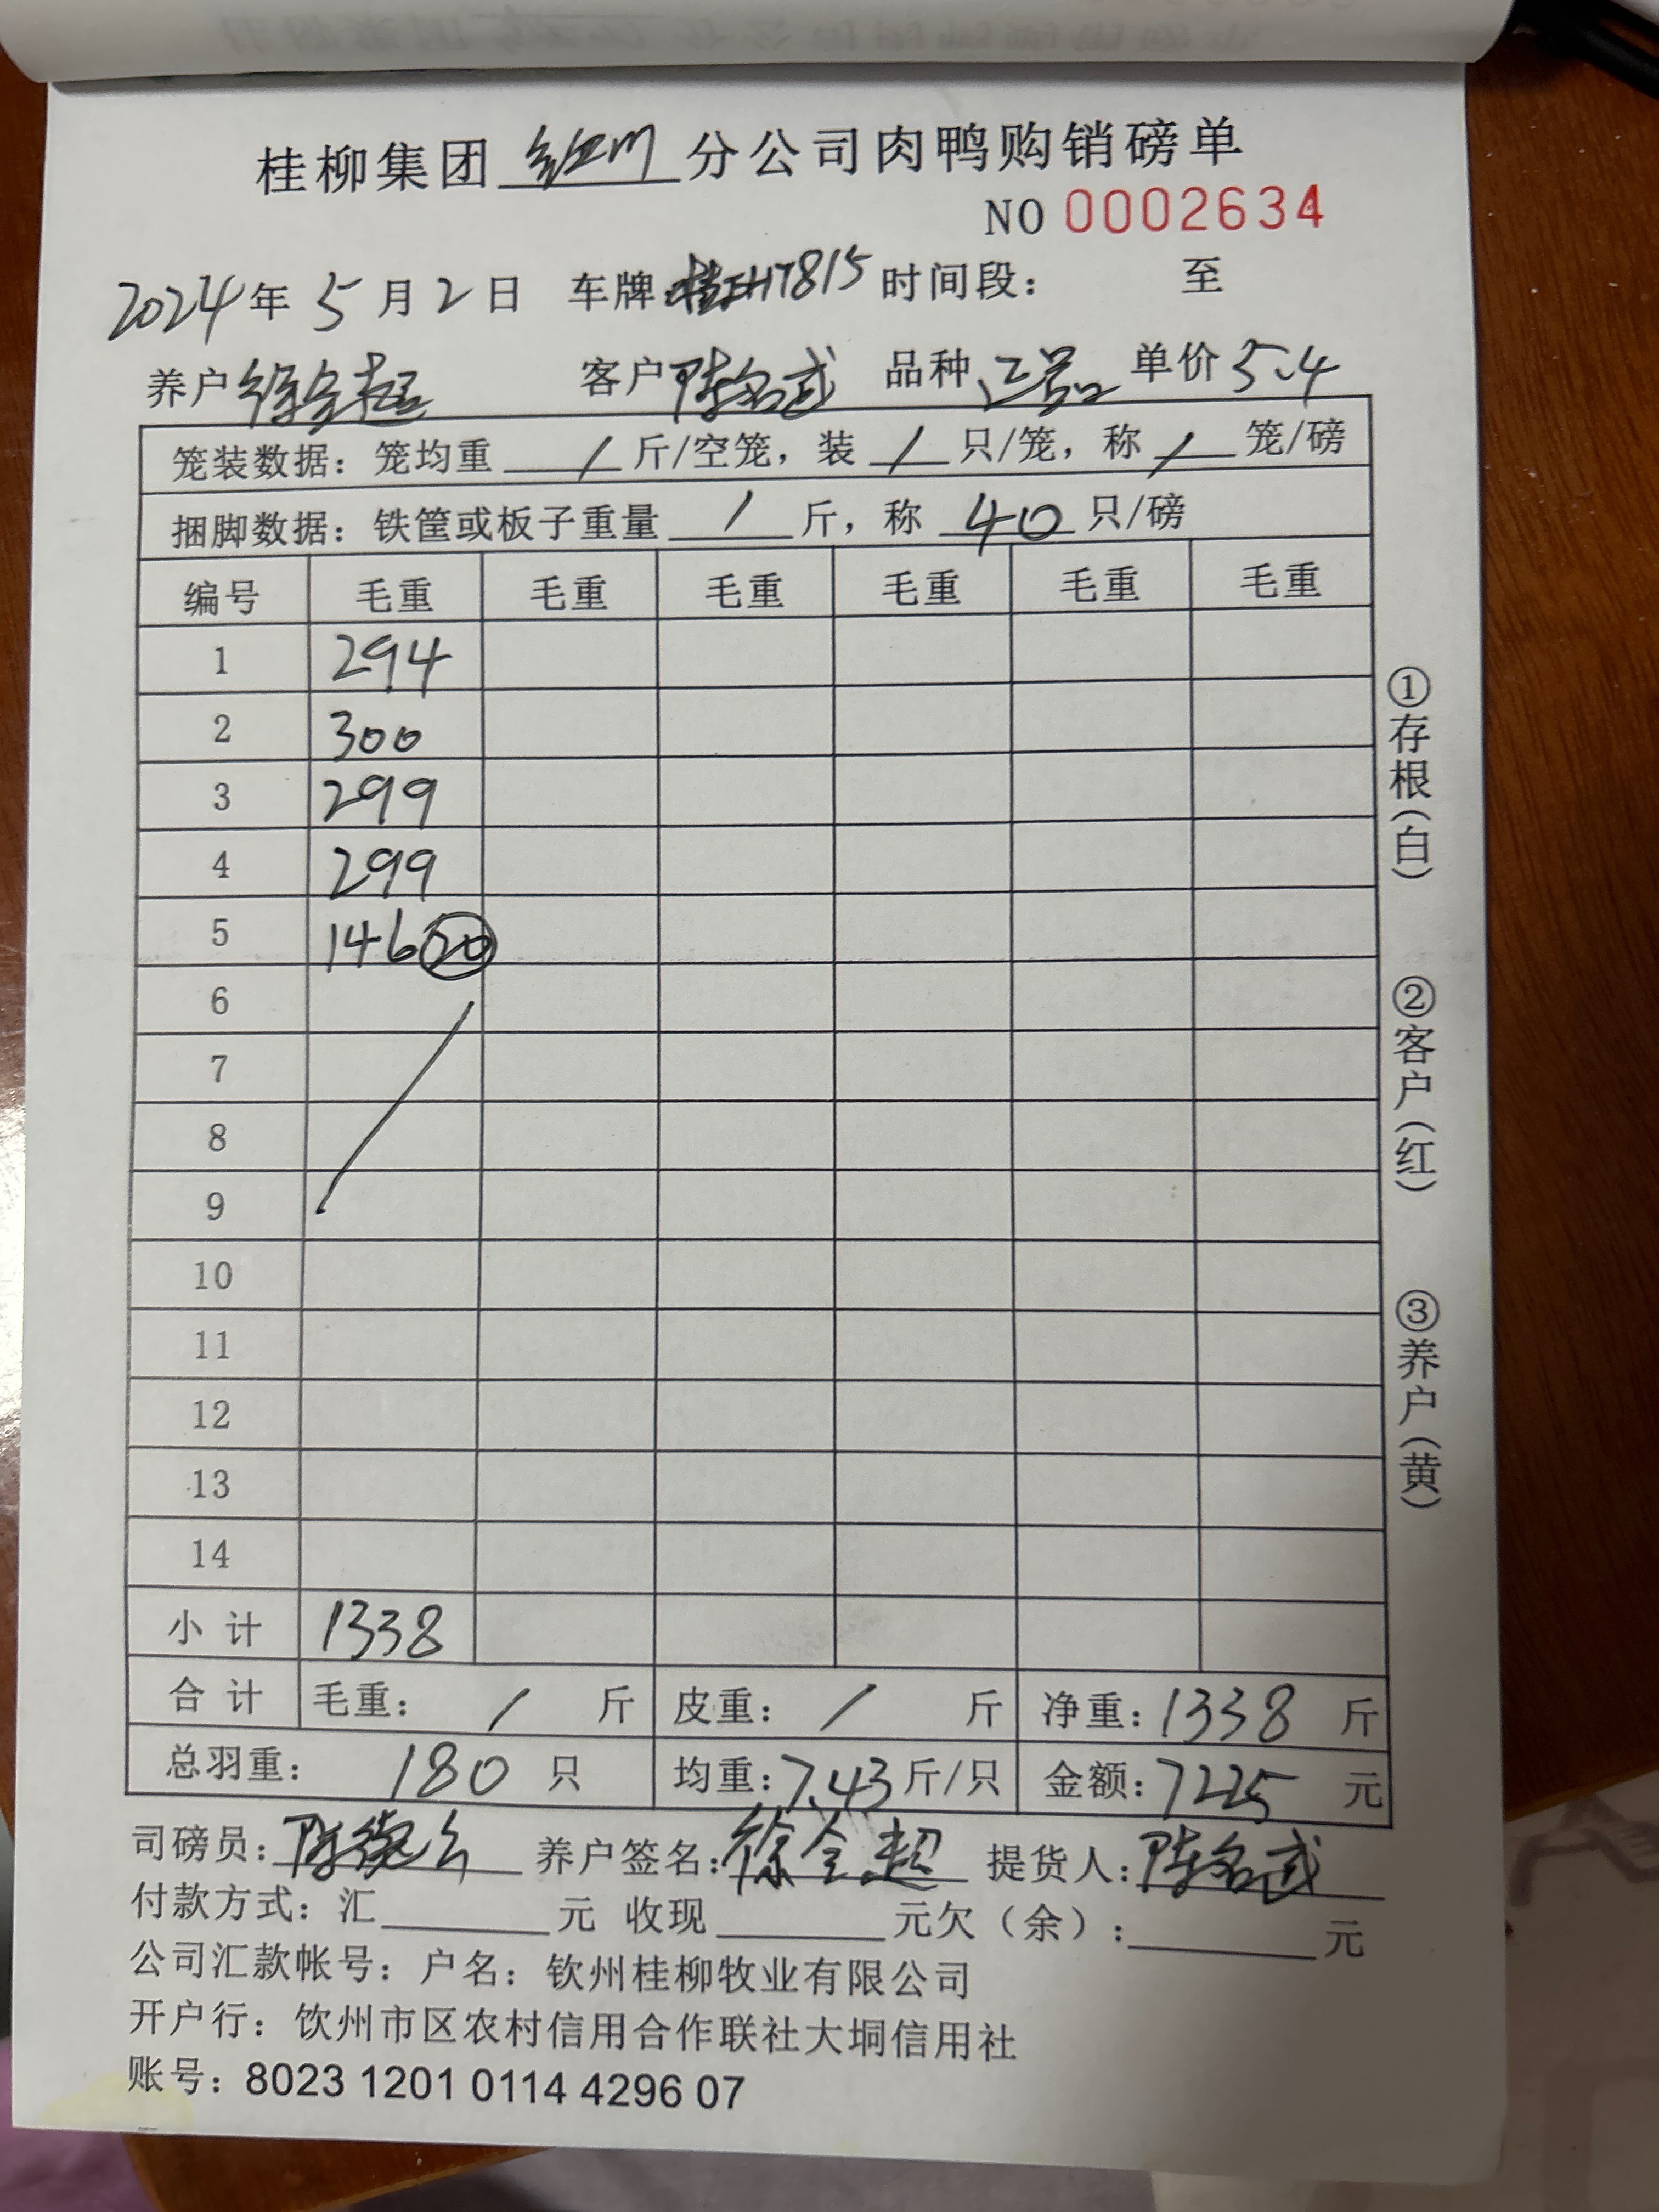 桂柳集团 分公司肉鸭购销磅单
NO 0002634
2024年5月2日 车牌:桂 HT815 时间段: 至
养户 徐全超 客户 陈名武 品种 正品 单价 5.4
笼装数据:笼均重 / 斤/空笼,装 / 只/笼,称 / 笼/磅
捆脚数据:铁筐或板子重量 / 斤,称 40 只/磅
编号 毛重 毛重 毛重 毛重 毛重 毛重
1 294
2 300
3 299
4 299
5 146 20
6
7
8
9
10
11
12
13
14
小计 1338
合计 毛重: / 斤 皮重: / 斤 净重:1338 斤
总羽重: 180 只 均重:7.43斤/只 金额:7225 元
司磅员: 养户签名:徐全超 提货人:陈名武
付款方式:汇 元 收现 元欠(余): 元
公司汇款帐号:户名:钦州桂柳牧业有限公司
开户行:饮州市区农村信用合作联社大垌信用社
账号:8023 1201 0114 4296 07
①存根(白)
②客户(红)
③养户(黄)